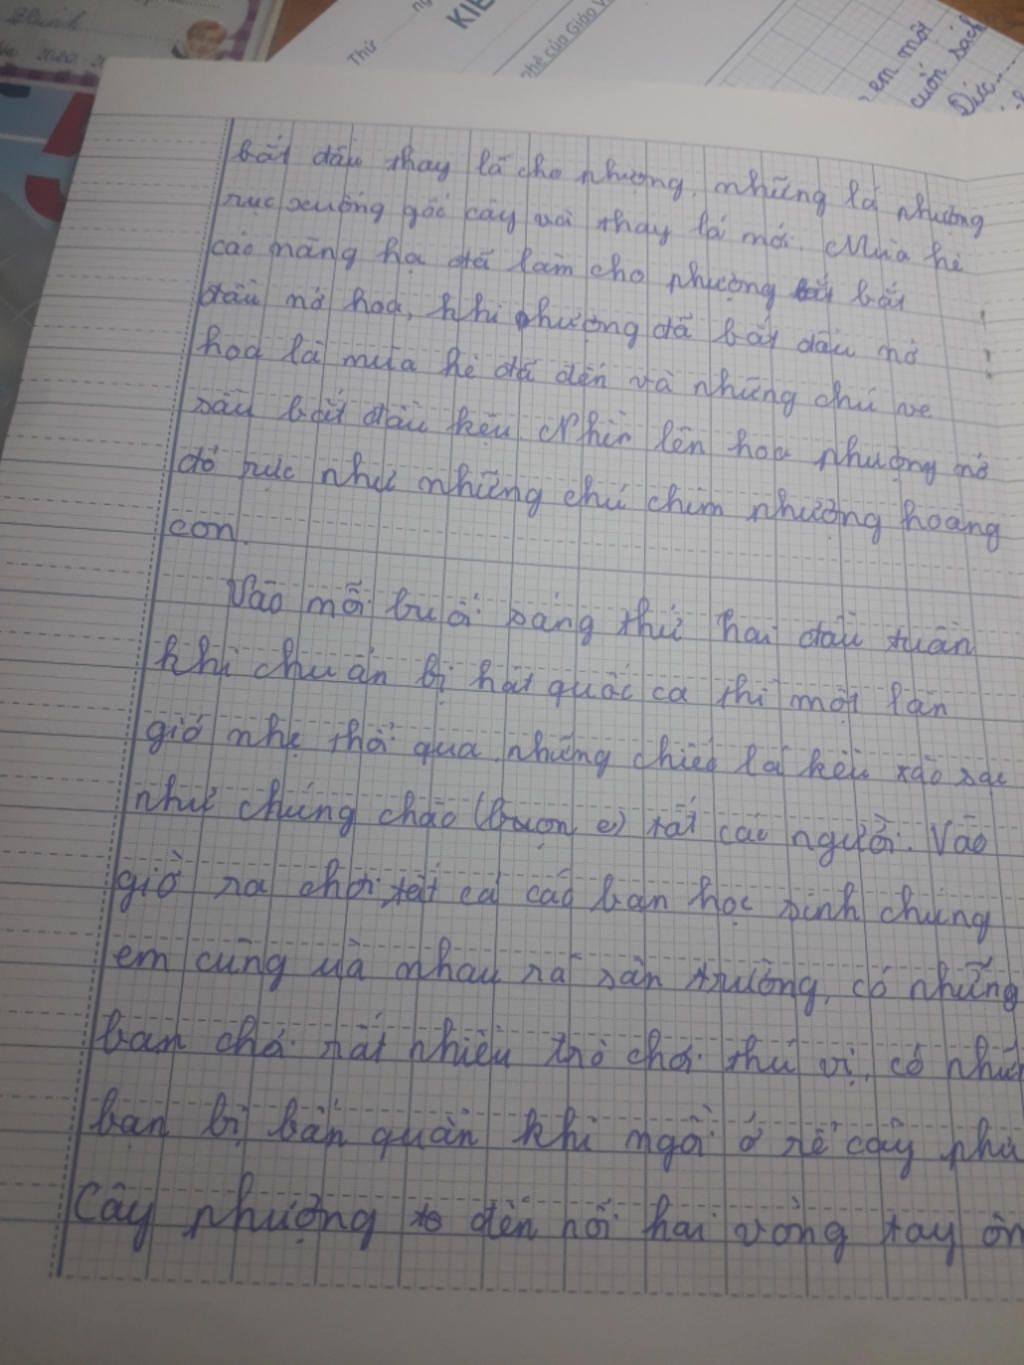 Thứ
KIÊ
phê của Giáo V
xem một
cuốn sách
Đức
bắt đầu thay lá cho phượng, những lá phượng
rục xuống gốc cây với thay lá mới. Mùa hè
các nàng hạ đã làm cho phượng bắt
đầu nở hoa, khi phượng đã bắt đầu nở
hoa là mùa hè đã đến và những chú ve
sầu bắt đầu kêu. Nhìn lên hoa phượng nở
đỏ rực như những chú chim phượng hoang
con.
Vào mỗi buổi sáng thứ hai đầu tuần
khi chuẩn bị hát quốc ca thì một làn
gió nhẹ thổi qua, những chiếc lá kêu xào xạc
như chúng chào (buọn e) tất các người. Vào
giờ ra chơi, tất cả các bạn học sinh chúng
em cũng ùà nhau ra sân trường, có những
bạn chơi rất nhiều trò chơi thú vị, có nhữ
bạn bị bẩn quần khi ngồi ở rễ cây phư
Cây phượng to đến nỗi hai vòng tay ôn